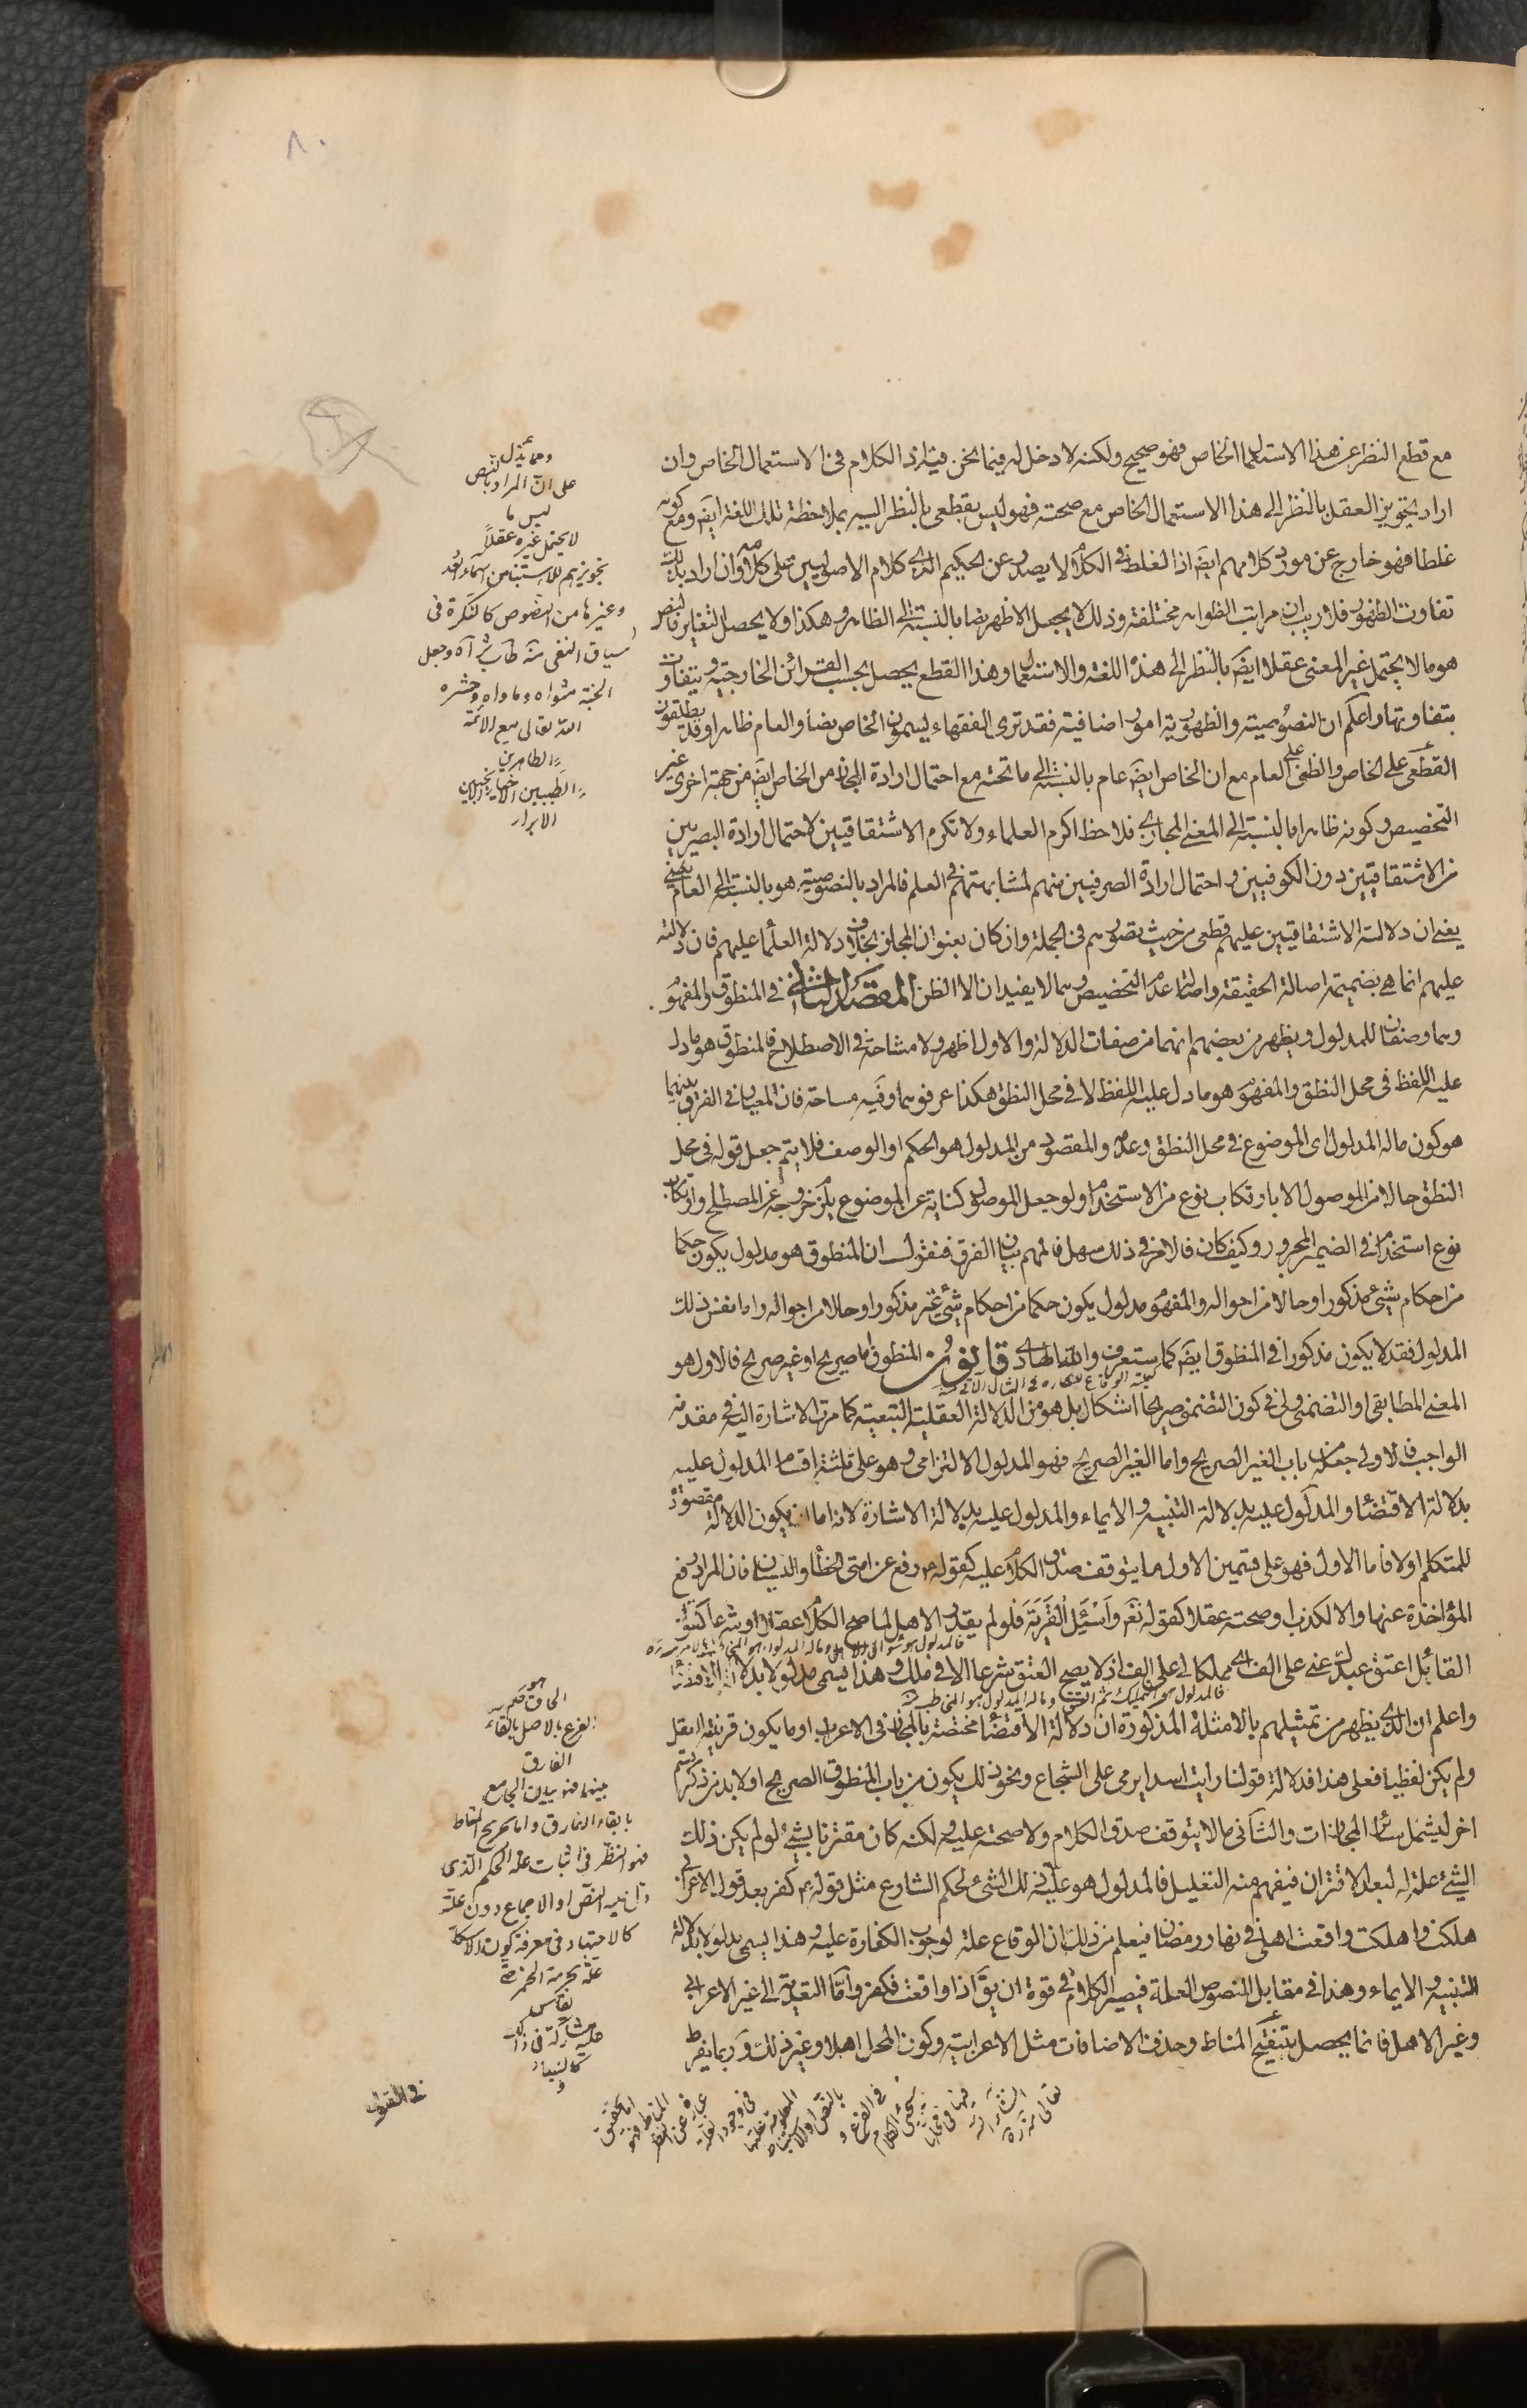 ٨٠
مع قطع النظر عن هذا الاستعمال الخاص فهو صحيح ولكنه لا دخل له فيما نحن فيه اذ الكلام فى الاستعمال الخاص وان
اراد تجويز العقل بالنظر الى هذا الاستعمال الخاص مع صحته فهو ليس بقطعى بالنظر اليه بملاحظة تلك اللغة ايضَ ومع كونه
غلطا فهو خارج عن مورد كلامهم ايضَ اذ الغلط فى الكلام لا يصدر عن الحكيم الذى كلام الاصوليين على كلامه وان اراد بذلك
تفاوت الظهور فلا ريب ان مراتب الظواهر مختلفة وذلك لا يجعل الاظهر نصا بالنسبة الى الظاهر وهكذا ولا يحصل التغاير فالنص
هو ما لا يحتمل غير المعنى عقلا ايضَ بالنظر الى هذه اللغة والاستعمال وهذا القطع يحصل بحسب القرائن الخارجية ويتفاوت
بتفاوتها واعلم ان النصوصية والظهورية امور اضافية فقد ترى الفقهاء يسمون الخاص نصا والعام ظاهرا وقد يطلقون
القطعى على الخاص والظنى على العام مع ان الخاص ايضَ عام بالنسبة الى ما تحته مع احتمال ارادة المجاز من الخاص ايضَ من جهة اخرى غير
التخصيص وكونه ظاهرا بالنسبة الى المعنى المجازى فلاحظ اكرم العلماء ولا تكرم الاشتقاقيين لاحتمال ارادة البصريين
من الاشتقاقيين دون الكوفيين واحتمال ارادة الصرفيين منهم لمشابهتهم فى العلم فالمراد بالنصوصية هو بالنسبة الى العام يعنى
يعنى ان دلالة الاشتقاقيين عليهم قطعى من حيث تصورهم فى الجملة وان كان بعنوان المجاز بخلاف دلالة العلماء عليهم فان دلالته
عليهم انما هى بضميمة اصالة الحقيقة واصالة عدم التخصيص وهما لا يفيدان الا الظن المقصد الثانى فى المنطوق والمفهوم
وهما وصفان للمدلول ويظهر من بعضهم انهما من صفات الدلالة والاول اظهر ولا مشاحة فى الاصطلاح فالمنطوق هو ما دل
عليه اللفظ فى محل النطق والمفهوم هو ما دل عليه اللفظ لا فى محل النطق هكذا عرفوهما وفيه مسامحة فان المعيار فى الفرق بينهما
هو كون ما له المدلول اى الموضوع فى محل النطق وعدمه والمقصود من المدلول هو الحكم او الوصف فلا يتم جعل قوله فى محل
النطق حالا من الموصول الا بارتكاب نوع من الاستخدام ولو جعل الموصول كناية عن الموضوع يلزم خروجه عن المصطلح وارتكاب
نوع استخدام فى الضمير المجرور وكيف كان فالامر فى ذلك سهل فالمهم بيان الفرق فنقول ان المنطوق هو مدلول يكون حكما
من احكام شئ مذكور او حالا من احواله والمفهوم مدلول يكون حكما من احكام شئ غير مذكور او حالا من احواله واما نفس ذلك
المدلول فقد لا يكون مذكورا فى المنطوق ايضَ كما ستعرف والله الهادى قانون المنطوق اما صريح او غير صريح فالاول هو
المعنى المطابقى او التضمنى ولى فى كون التضمنى صريحا اشكال بل هو من الدلالة العقلية التبعية كما مرت الاشارة اليه فى مقدمة
الواجب فالاولى جعله من باب الغير الصريح واما الغير الصريح فهو المدلول الالتزامى وهو على ثلثة اقسام المدلول عليه
بدلالة الاقتضاء والمدلول عليه بدلالة التنبيه والايماء والمدلول عليه بدلالة الاشارة لانه اما ان يكون الدلالة مقصودة
للمتكلم اولا فاما الاول فهو على قسمين الاول ما يتوقف صدق الكلام عليه كقوله رفع عن امتى الخطأ والنسيان فان المراد رفع
المؤاخذة عنها والا لكذب او صحته عقلا كقوله تعَ واسئل القرية فلو لم يقدر الاهل لما صح الكلام عقلا او شرعا كقول
القائل اعتق عبدك عنى على الف اى مملكا لى على الف اذ لا يصح العتق شرعا الا فى ملك وهذا يسمى مدلولا بدلالة الاقتضاء
واعلم ان الذى يظهر من تمثيلهم بالامثلة المذكورة ان دلالة الاقتضاء مختصة بالمجاز فى الاعراب او ما يكون قرينته العقل
ولم يكن لفظيا فعلى هذا فدلالة قولنا رايت اسدا يرمى على الشجاع ونحو ذلك يكون من باب المنطوق الصريح او لا بد من ذكر قسم
اخر ليشمل سائر المجازات والثانى ما لا يتوقف صدق الكلام ولا صحته عليه ولكنه كان مقترنا بشئ لو لم يكن ذلك
الشئ علة له لبعد الاقتران فيفهم منه التعليل فالمدلول هو علية ذلك الشئ لحكم الشارع مثل قوله كفر بعد قول الاعرابى
هلكت واهلكت واقعت اهلى فى نهار رمضان فيعلم من ذلك ان الوقاع علة لوجوب الكفارة عليه وهذا يسمى مدلولا بدلالة
التنبيه والايماء وهذا فى مقابل المنصوص العلة فيصير الكلام فى قوة ان يقَ اذا واقعت فكفر واما التعدية الى غير الاعرابى
وغير الاهل فانما يحصل بتنقيح المناط وحذف الاضافات مثل الاعرابية وكون المحل اهلا وغير ذلك وربما يفرط
فى القول
ومما يدل
على ان المراد بالنص
ليس ما
لا يحتمل غيره عقلا
وغيرها من النصوص كالنكرة فى
الجنة مثواه وماواه وحشره
الله تعالى مع الائمة
الطاهرين
الطيبين الاخيار
الابرار
الفرع بالاصل بالغاء
الفارق
فهو النظر فى اثبات علة الحكم الذى
دل عليه النص او الاجماع دون علته